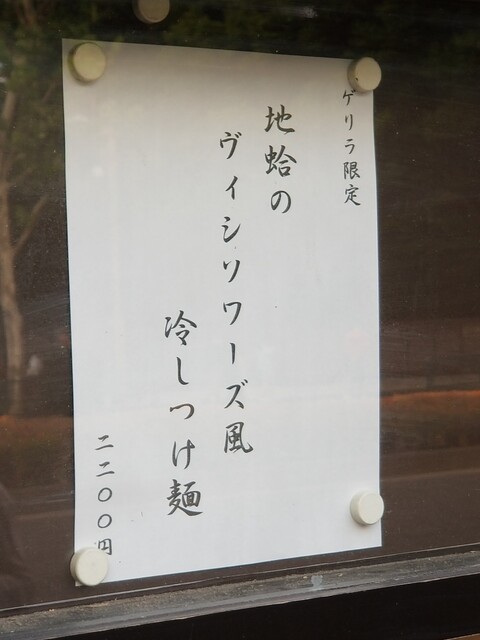 ゲリラ限定
地蛤の
ヴィシソワーズ風
冷しつけ麺
二二〇〇円